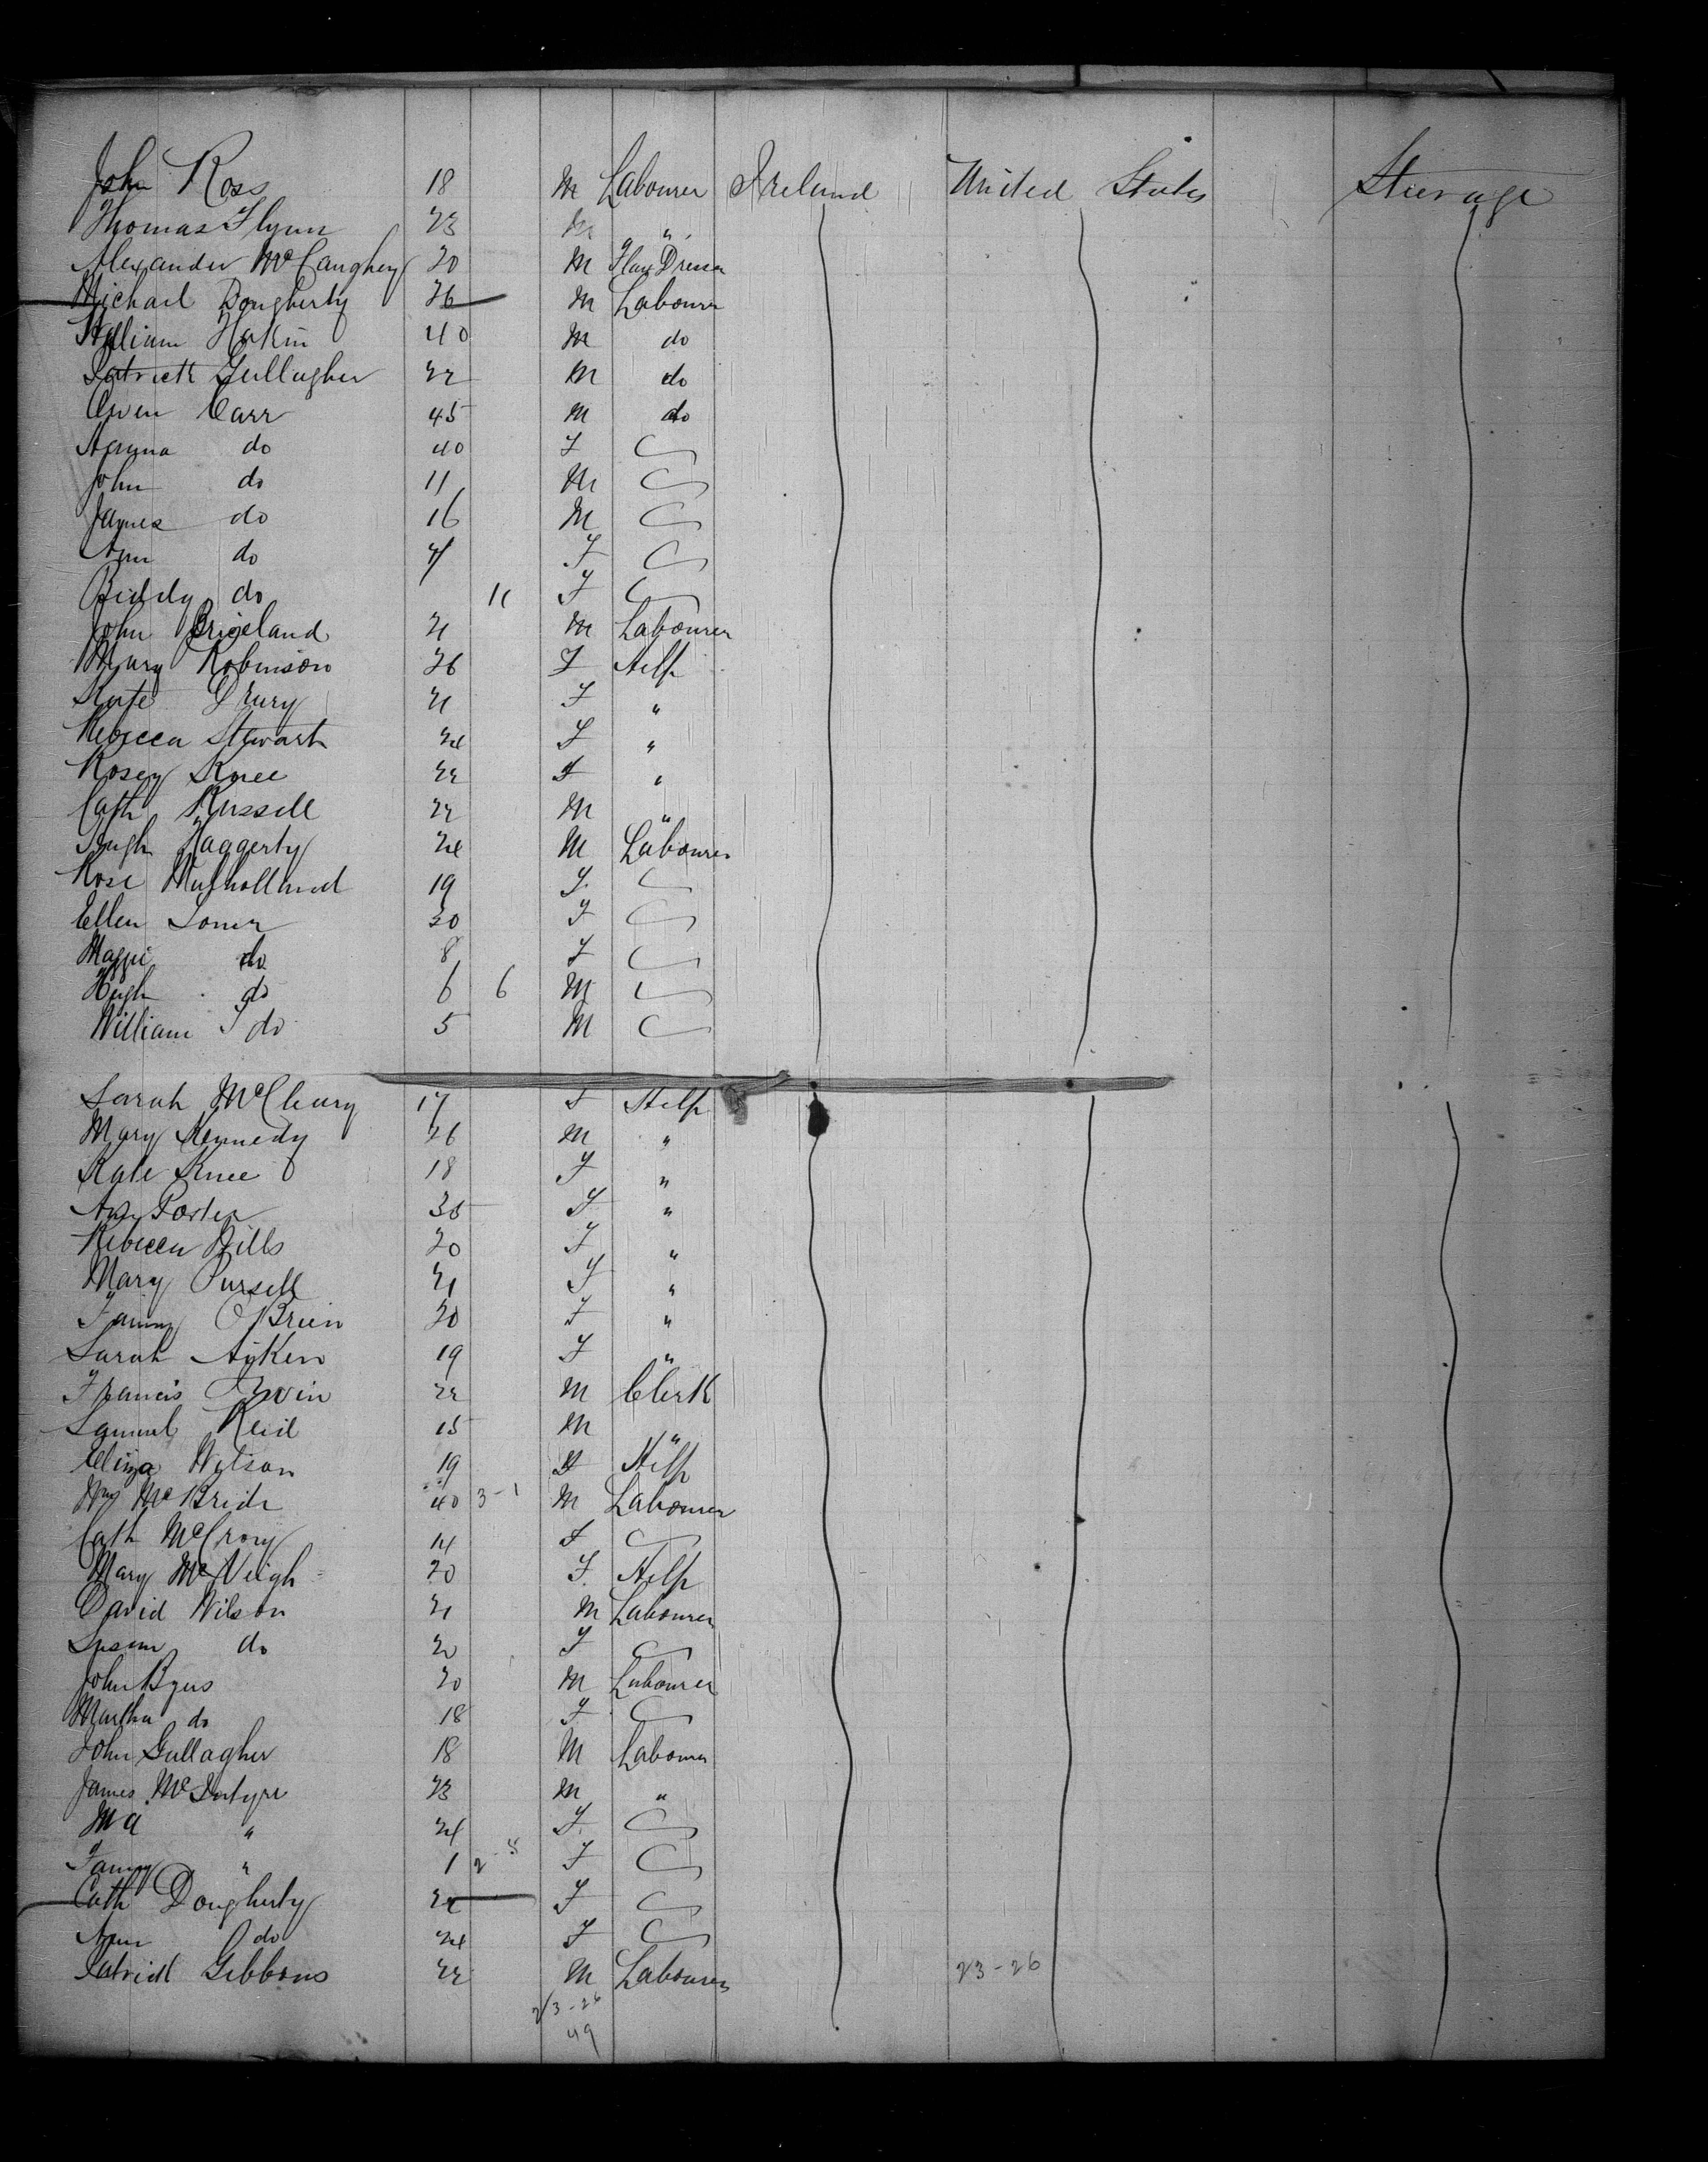 John Ross 18 M Labourer Ireland United States Steerage
Thomas Flynn 23 M "
Alexander McCaughey 20 M Flax Dresser
Michael Dougherty 26 M Labourer
William 40 M do
Patrick Gullagher 22 M do
Owen Carr 45 M do
do 40 F
John do 11 M
James do 16 M
Ann do F
Biddy do 11 F
John 21 M Labourer
Mary Robinson 26 F Help
Kate Drury 21 F "
Rebecca Stewart 24 F "
Rosey Knee 22 F "
Cath Russell 22 M "
Hugh Haggerty 24 M Labourer
Rose Mulholland 19 F
Ellen 30 F
Maggie do 8 F
Hugh do 6 6 M
William J do 5 M
Sarah McCleary 17 F Help
Mary Kennedy 26 M "
Kate Knee 18 F "
Porter 35 F "
Rebecca Bills 20 F "
Mary Pursell 21 F "
Fanny OBrien 20 F "
Sarah Aiken 19 F "
Francis Irwin 22 M Clerk
Samuel Reid 15 M "
Eliza Wilson 19 F Help
Wm McBride 40 3-1 M Labourer
Cath McCrory 14 F
Mary McVeigh 20 F Help
David Wilson 21 M Labourer
Susan do 20 F
John Byers 20 M Labourer
Martha do 18 F
John Gullagher 18 M Labourer
James McIntyre 23 M "
Ma " 24 F
Fanny " 1 F
Cath Dougherty 22 F
Ann do 24 F
Patrick Gibbons 22 M Labourer 23-26
23-26
49